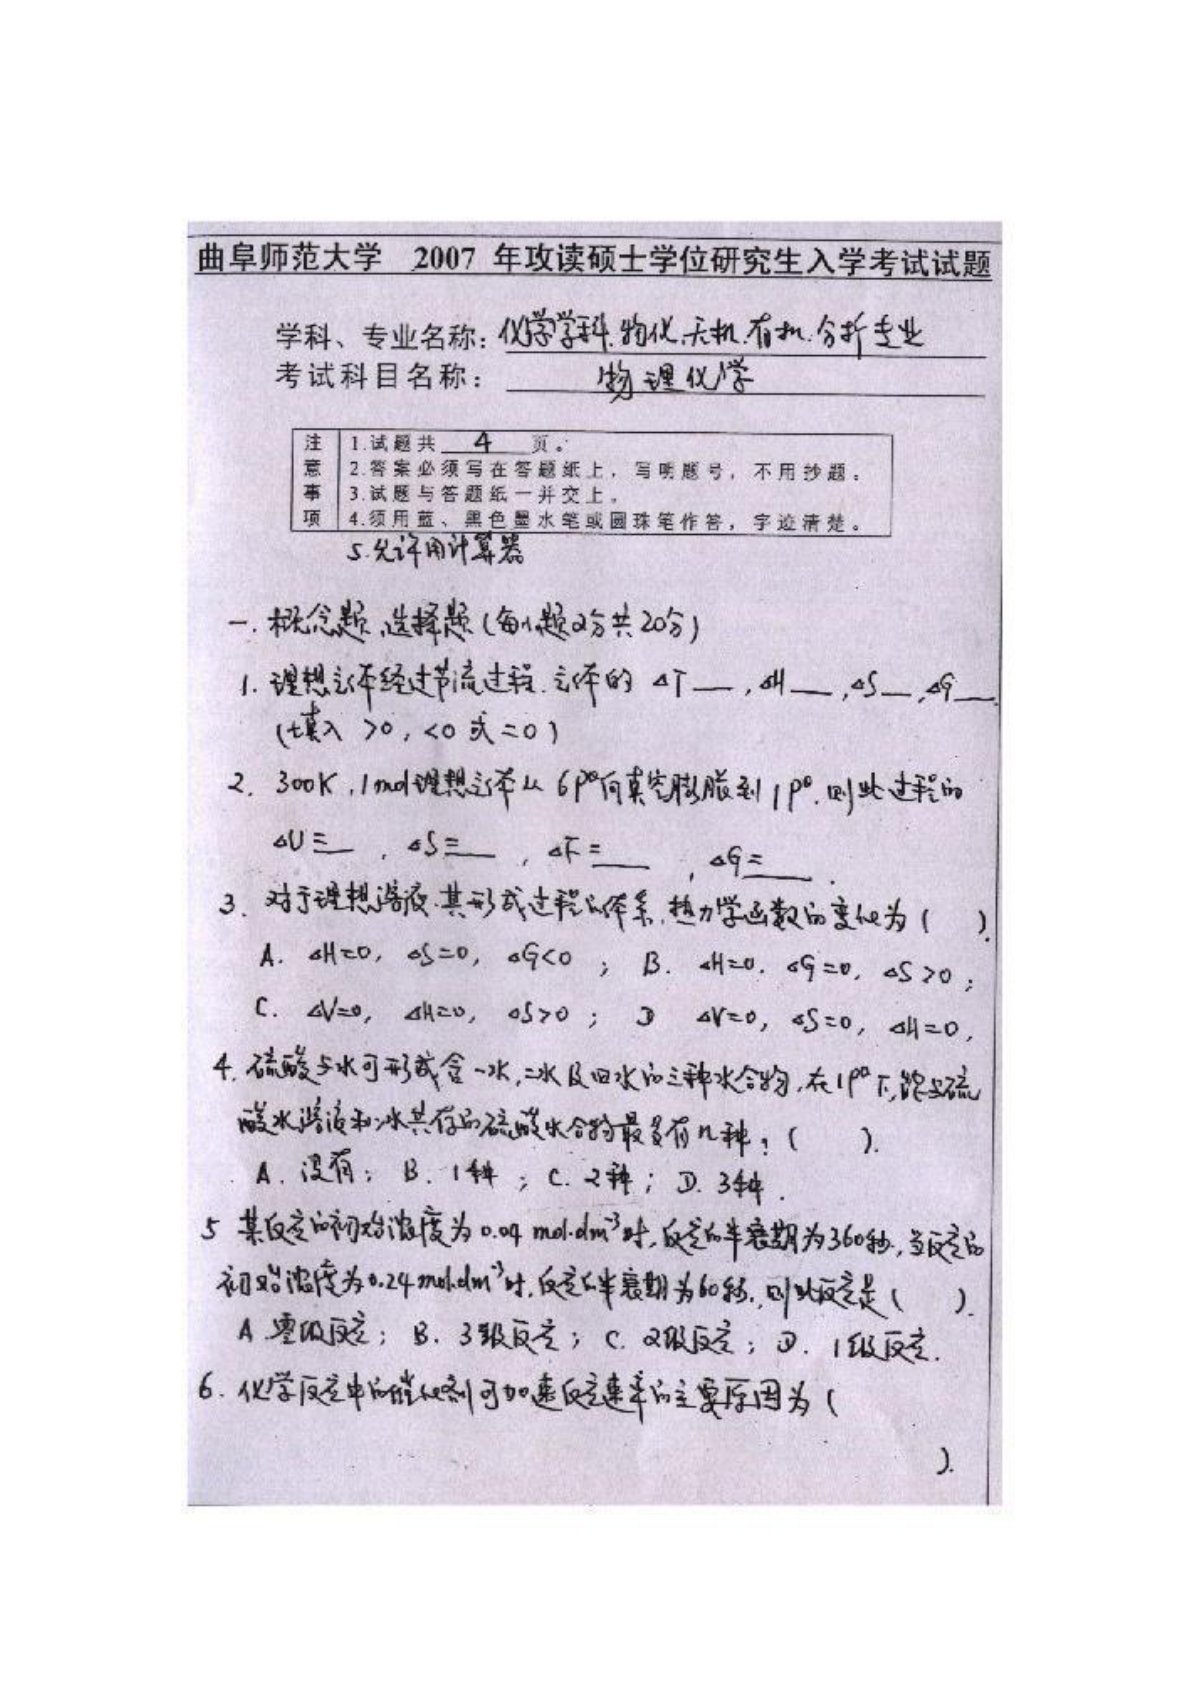 曲阜师范大学 2007 年攻读硕士学位研究生入学考试试题
学科、专业名称: 化学学科.物化.无机.有机.分析专业
考试科目名称: 物理化学
注意事项
1.试题共 4 页。
2.答案必须写在答题纸上，写明题号，不用抄题。
3.试题与答题纸一并交上。
4.须用蓝、黑色墨水笔或圆珠笔作答，字迹清楚。
5.允许用计算器
一. 概念题、选择题 (每小题2分共20分)
1. 理想气体经过节流过程.气体的 △T__, △H__, △S__, △G__.
(填入 >0, <0 或 =0)
2. 300K, 1mol理想气体从 6P⁰向真空膨胀到 1P⁰. 则此过程的
△U=__, △S=__, △F=__, △G=__.
3. 对于理想溶液.其形成过程的体系.热力学函数的变化为 ( ).
A. △H=0, △S=0, △G<0 ; B. △H=0. △G=0, △S>0 ;
C. △V=0, △H=0, △S>0 ; D △V=0, △S=0, △H=0,
4. 硫酸与水可形成含一水,二水及四水的三种水合物,在1P⁰下,能与硫
酸水溶液和冰共存的硫酸水合物最多有几种: ( ).
A. 没有; B. 1种 ; C. 2种 ; D. 3种.
5 某反应的初始浓度为 0.04 mol·dm⁻³时,反应的半衰期为360秒,当反应的
初始浓度为0.24mol·dm⁻³时,反应的半衰期为60秒,则此反应是 ( ).
A 零级反应; B. 3级反应; C. 2级反应; D. 1级反应.
6. 化学反应中的催化剂可加速反应速率的主要原因为 (
).